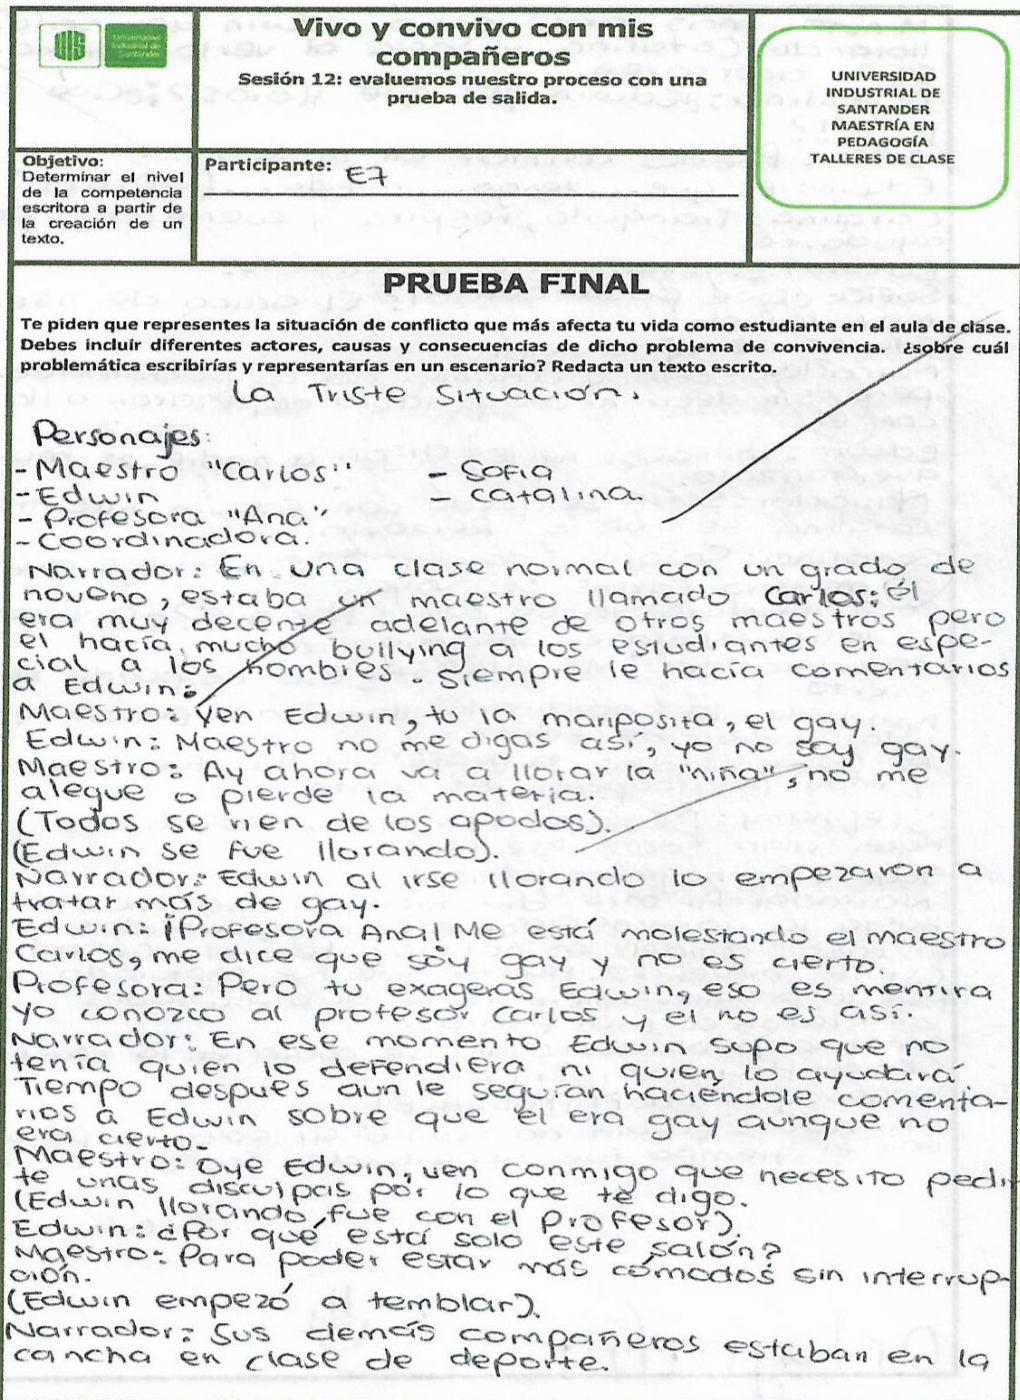 UIS
Universidad
Industrial de
Santander
Vivo y convivo con mis
compañeros
Sesión 12: evaluemos nuestro proceso con una
prueba de salida.
UNIVERSIDAD
INDUSTRIAL DE
SANTANDER
MAESTRÍA EN
PEDAGOGÍA
TALLERES DE CLASE
Objetivo:
Determinar el nivel
de la competencia
escritora a partir de
la creación de un
texto.
Participante: E7
PRUEBA FINAL
Te piden que representes la situación de conflicto que más afecta tu vida como estudiante en el aula de clase.
Debes incluir diferentes actores, causas y consecuencias de dicho problema de convivencia. ¿sobre cuál
problemática escribirías y representarías en un escenario? Redacta un texto escrito.
La Triste Situación.
Personajes:
- Maestro "Carlos"
- Edwin
- Profesora "Ana"
- Coordinadora.
- Sofia
- Catalina.
Narrador: En una clase normal con un grado de
noveno, estaba un maestro llamado Carlos: él
era muy decente adelante de otros maestros pero
el hacía mucho bullying a los estudiantes en espe-
cial a los hombres. Siempre le hacía comentarios
a Edwin.
Maestro: Ven Edwin, tu la mariposita, el gay.
Edwin: Maestro no me digas así, yo no soy gay.
Maestro: Ay ahora va a llorar la "niña", no me
alegue o pierde la materia.
(Todos se rien de los apodos).
(Edwin se fue llorando).
Narrador: Edwin al irse llorando lo empezaron a
tratar más de gay.
Edwin: ¡Profesora Ana! Me está molestando el maestro
Carlos, me dice que soy gay y no es cierto.
Profesora: Pero tu exageras Edwin, eso es mentira
yo conozco al profesor Carlos y el no es así.
Narrador: En ese momento Edwin supo que no
tenía quien lo defendiera ni quien lo ayudara.
Tiempo despues aun le seguían haciéndole comenta-
rios a Edwin sobre que el era gay aunque no
era cierto.
Maestro: Oye Edwin, ven conmigo que necesito pedir
te unas disculpas por lo que te digo.
(Edwin llorando fue con el Profesor)
Edwin: ¿Por qué está solo este salón?
Maestro: Para poder estar más cómodos sin interrup-
ción.
(Edwin empezó a temblar).
Narrador: Sus demás compañeros estaban en la
cancha en clase de deporte.